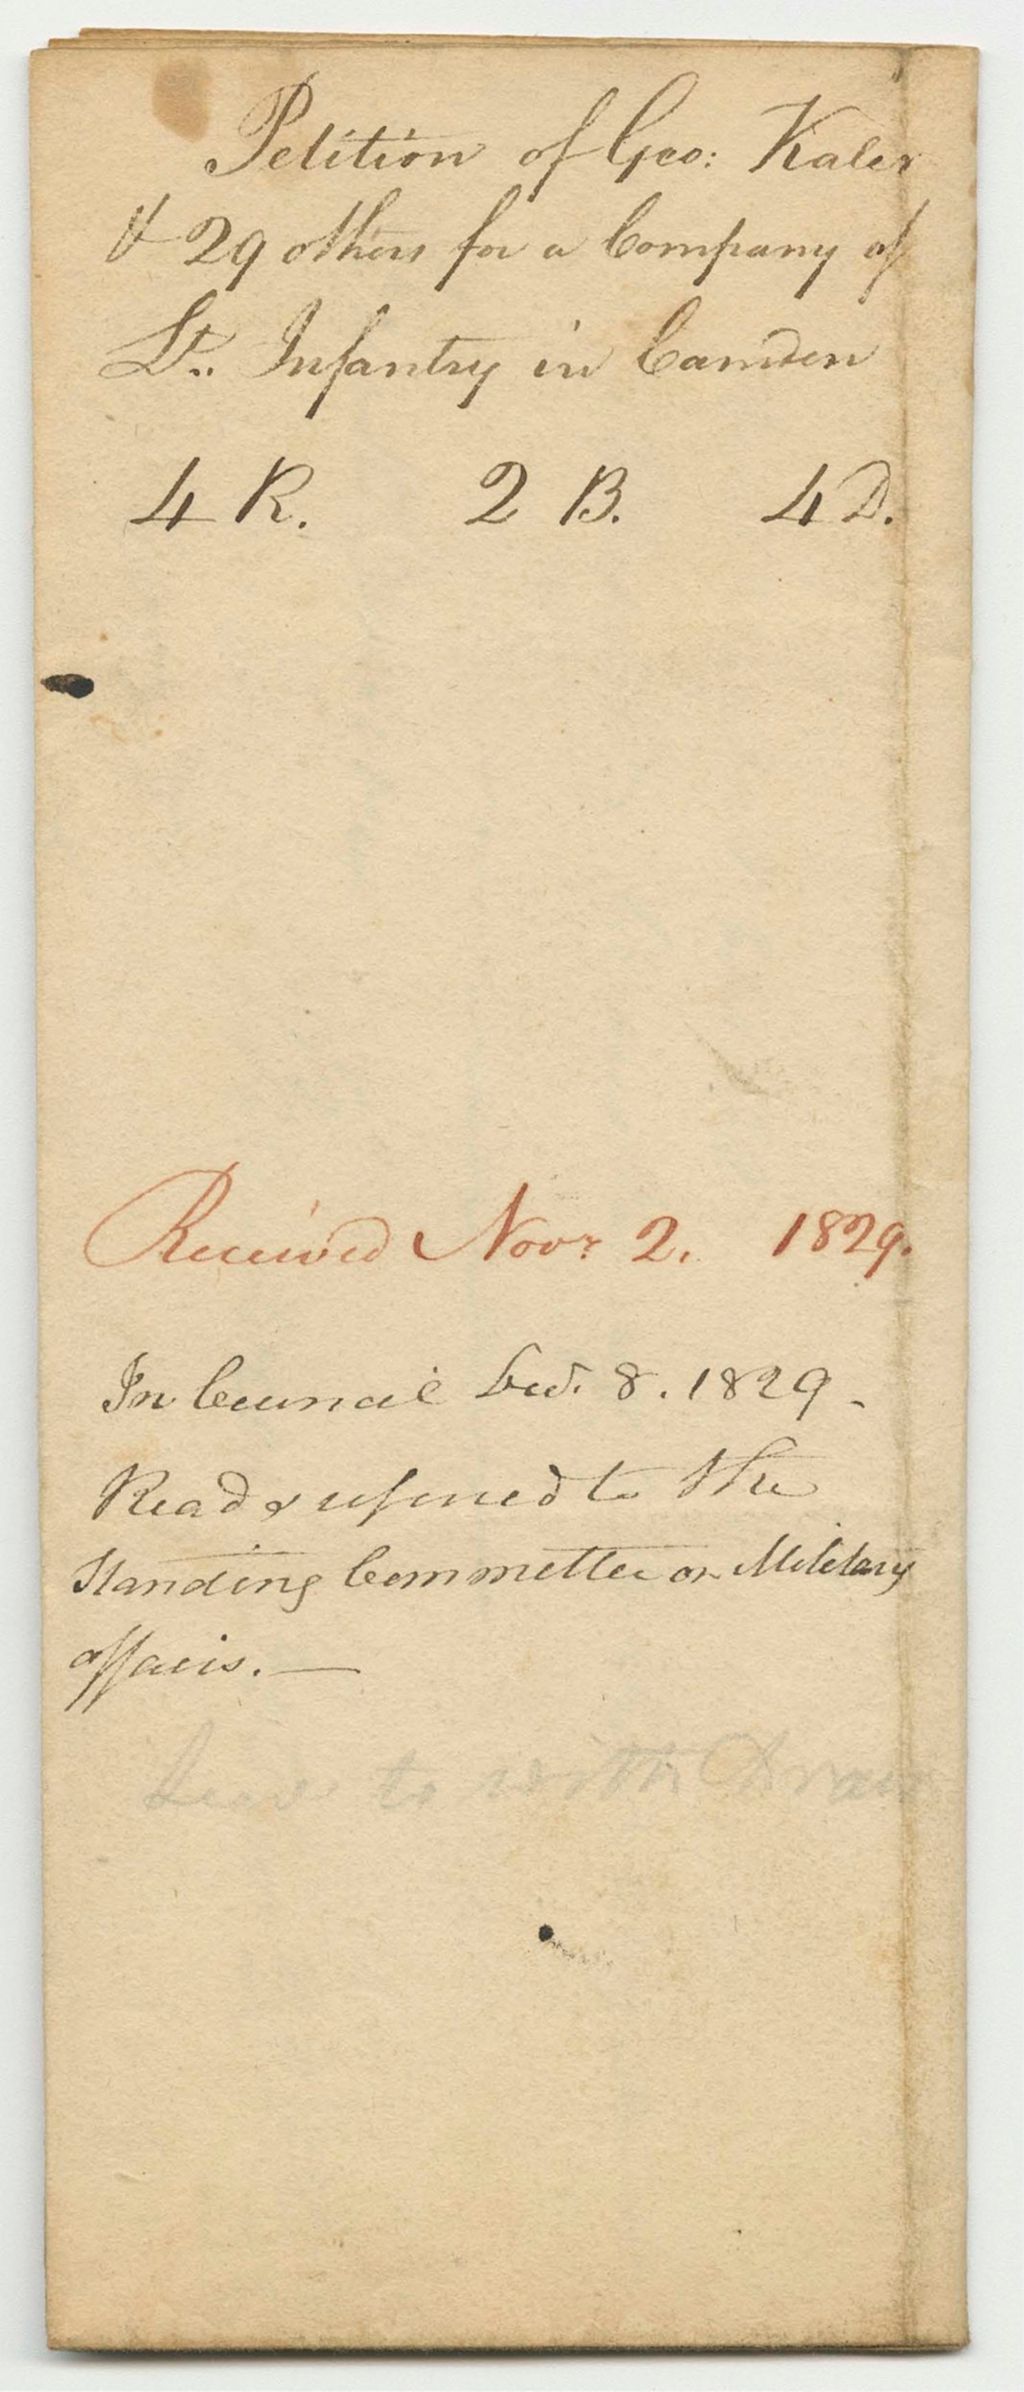 Petition of Geo: Kaler
& 29 others for a Company of
Lt. Infantry in Camden
4 R. 2 B. 4 D.
Received Novr 2. 1829.
In Council Dec. 8. 1829.
Read & referred to the
Standing Committee on Military
affairs. —
Leave to with Draw